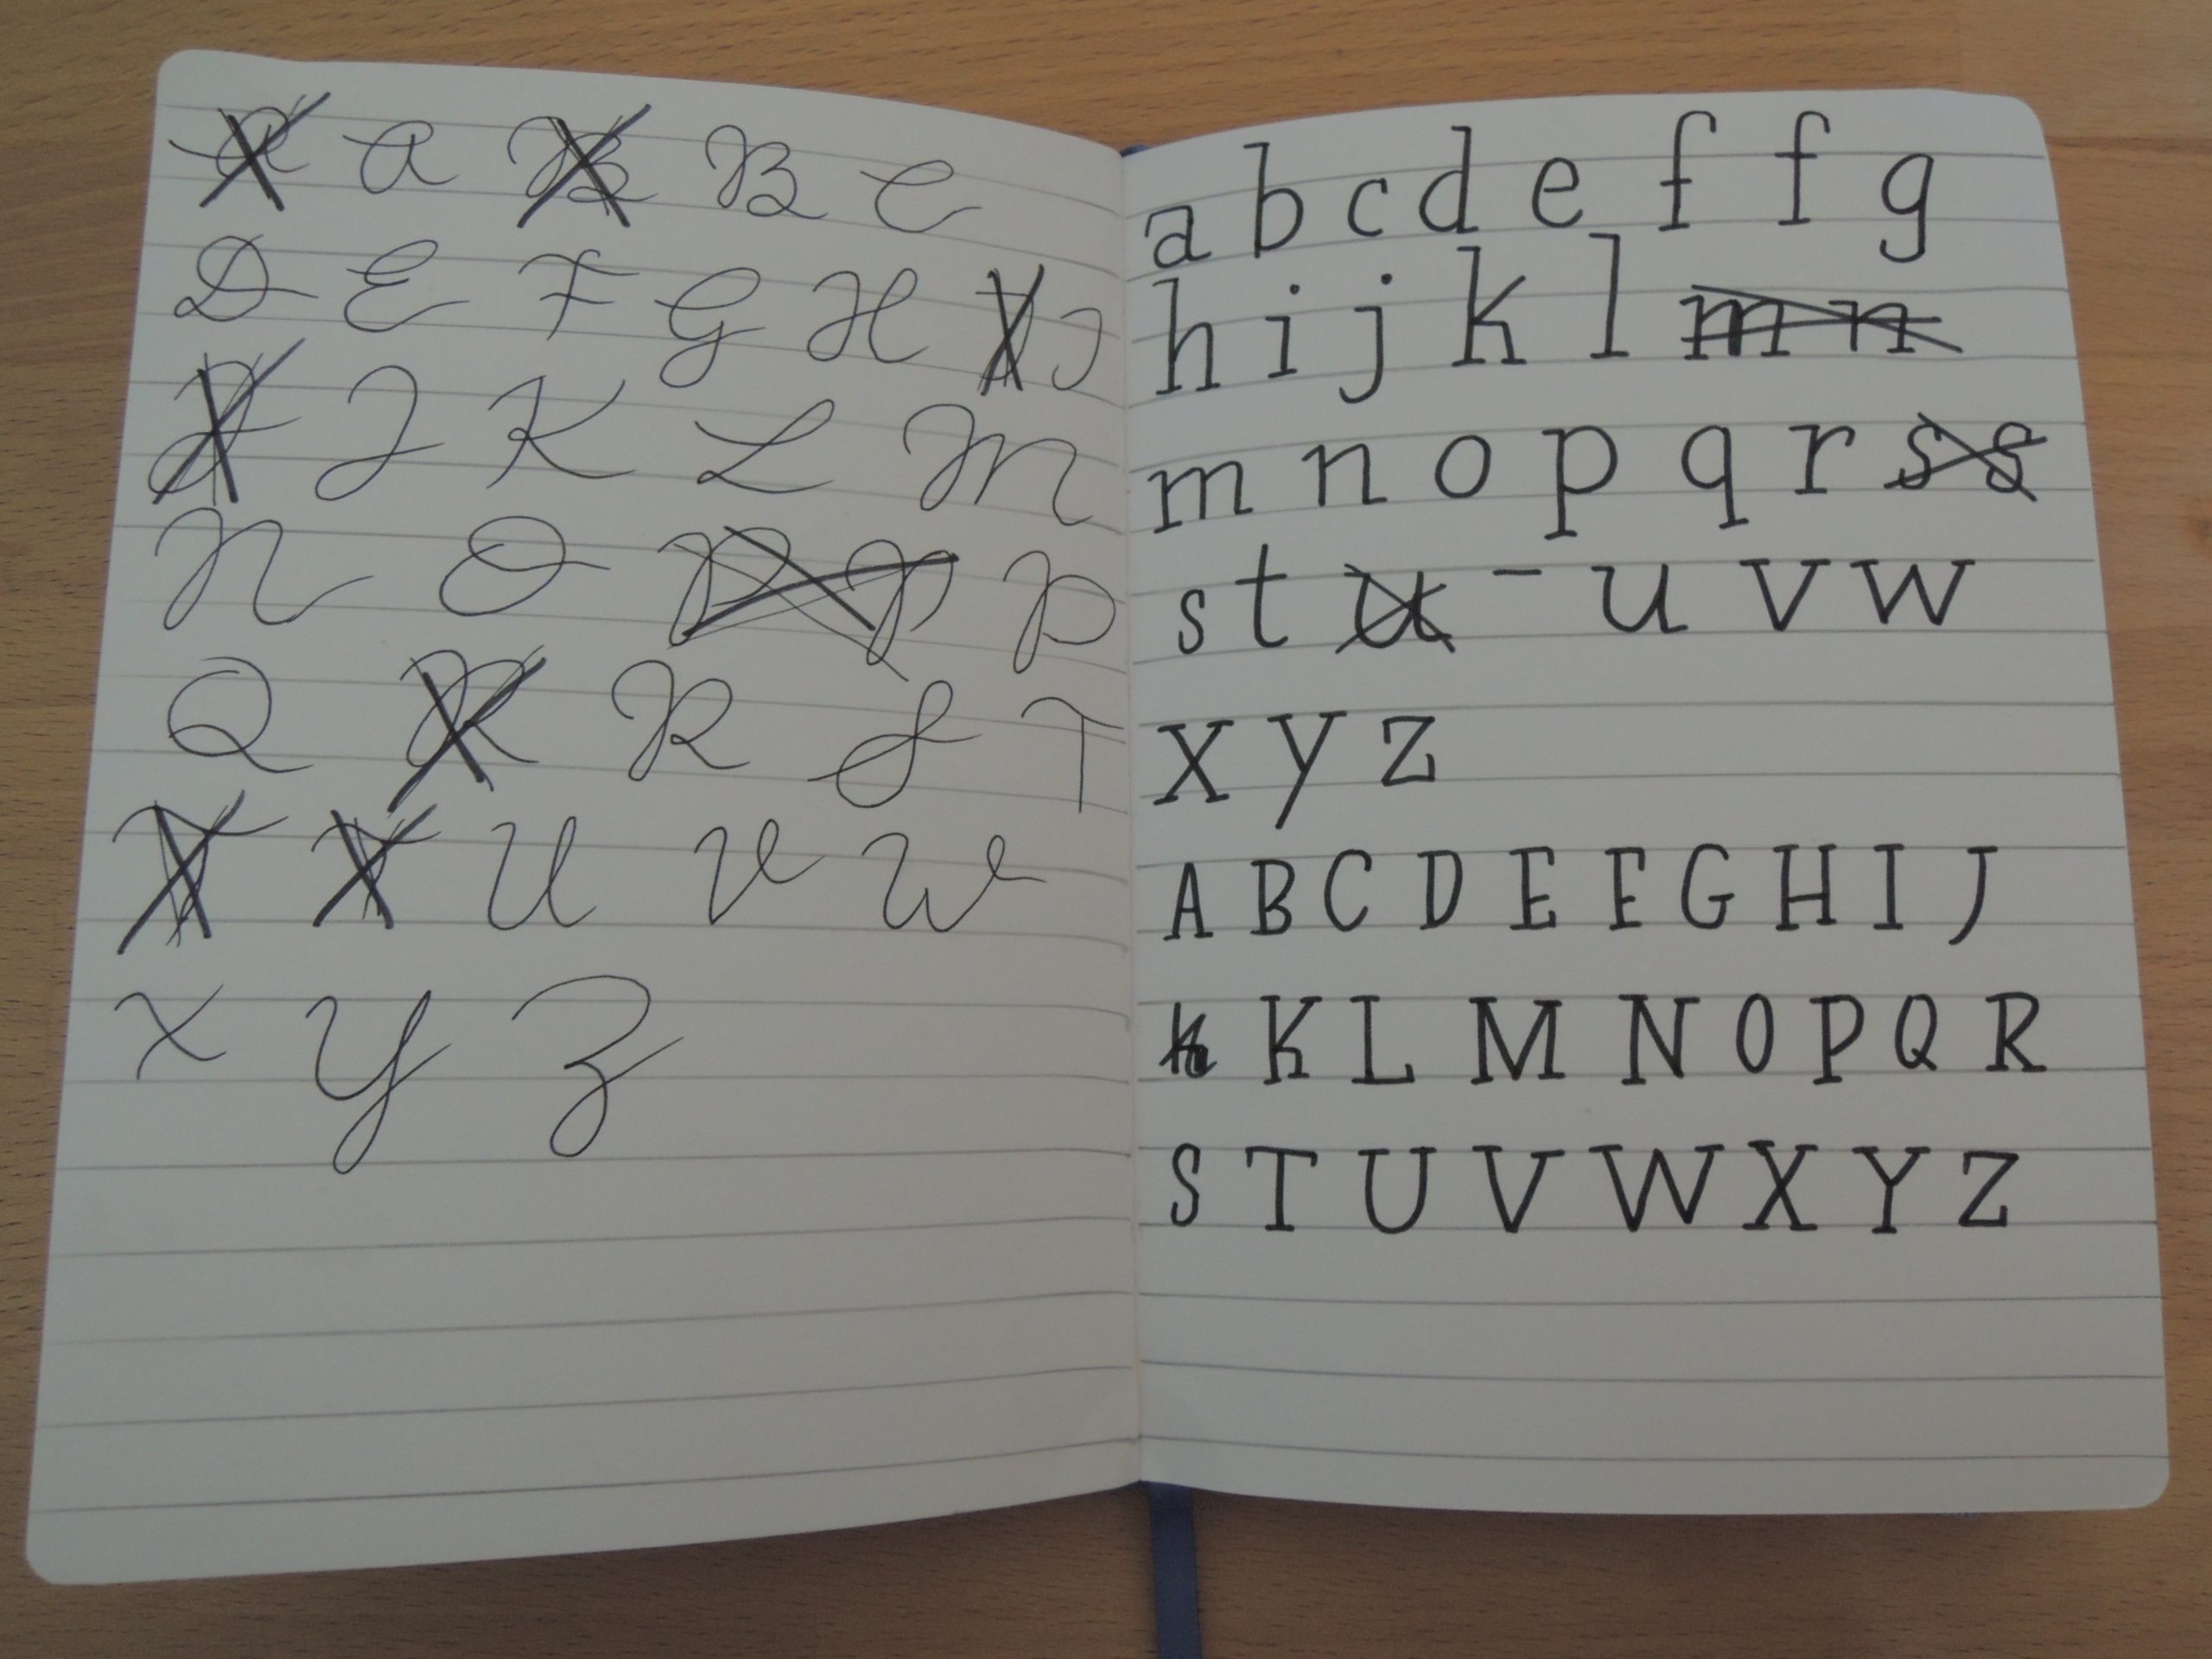 A B C
D E F G H I
J K L M
N O P
Q R S T
U V W
X Y Z
a b c d e f f g
h i j k l m n
m n o p q r s s
s t u - u v w
x y z
A B C D E F G H I J
K L M N O P Q R
S T U V W X Y Z